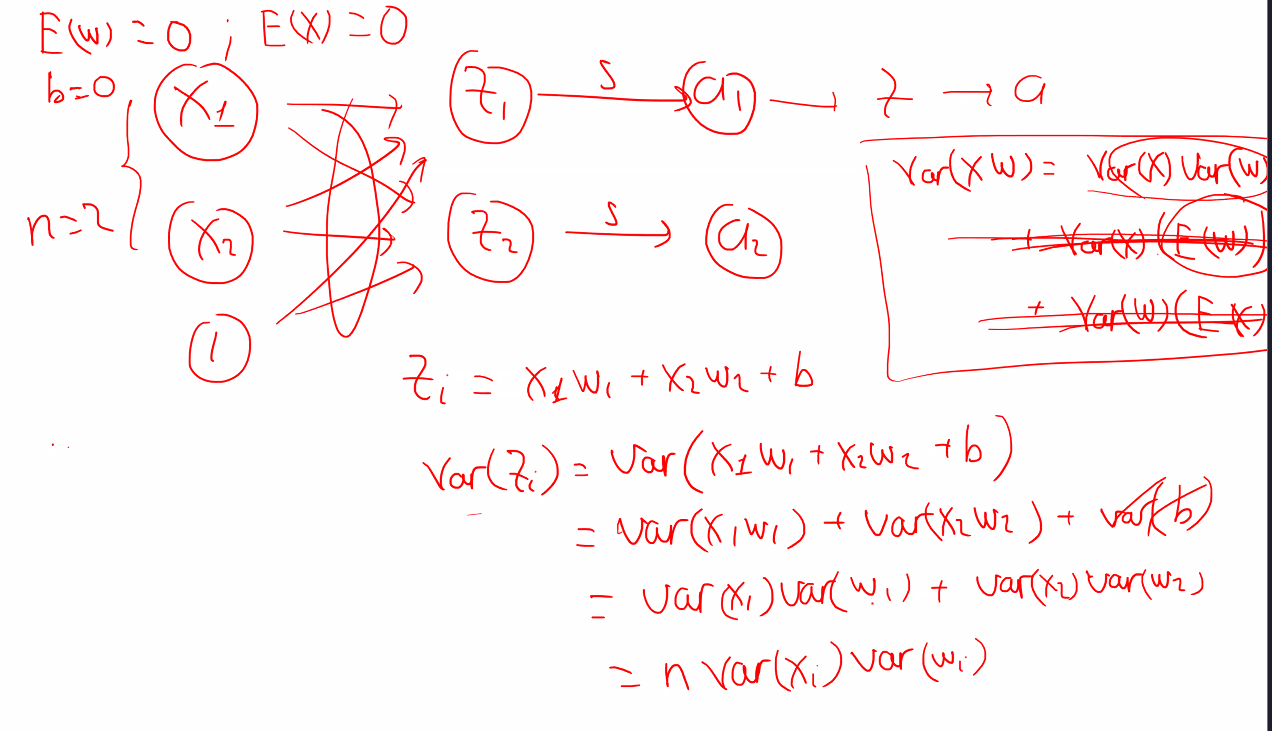 E(w) = 0 ; E(X) = 0
b=0
X1
Z1
S
a1
Z → a
Var(XW) = Var(X) Var(W)
+ Var(X) (E(W)
+ Var(W) (E X)
n=2
X2
Z2
S
a2
1
Zi = X1W1 + X2W2 + b
Var(Zi) = Var(X1W1 + X2W2 + b)
= Var(X1W1) + Var(X2W2) + Var(b)
= Var(X1) Var(W1) + Var(X2) Var(W2)
= n Var(Xi) Var(Wi)